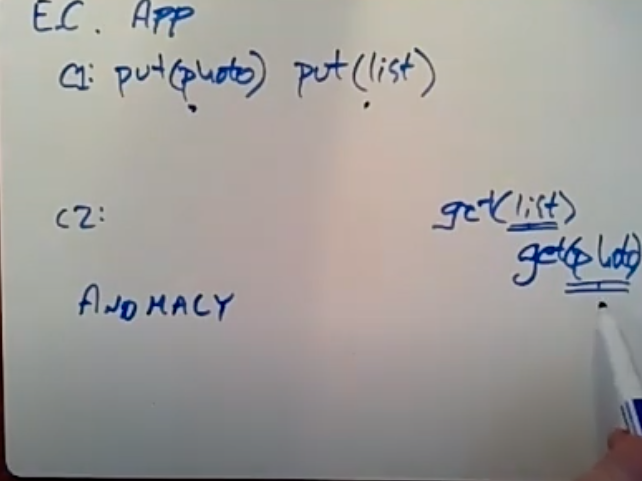 E.C. App
C1: put(photo) put(list)
C2: get(list)
get(photo)
ANOMALY